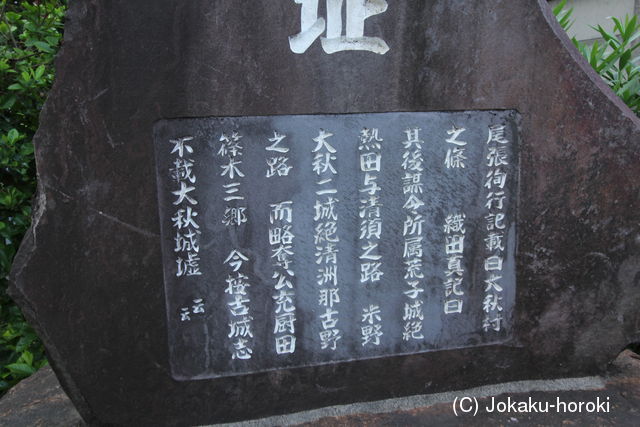 址
尾張徇行記載曰大秋村
之條　織田真記曰
其後謀令所属荒子城絶
熱田与清須之路　米野
大秋二城絶清洲那古野
之路　而略奪公充厨田
篠木三郷　今按古城志
不載大秋城墟　云云
(C) Jokaku-horoki